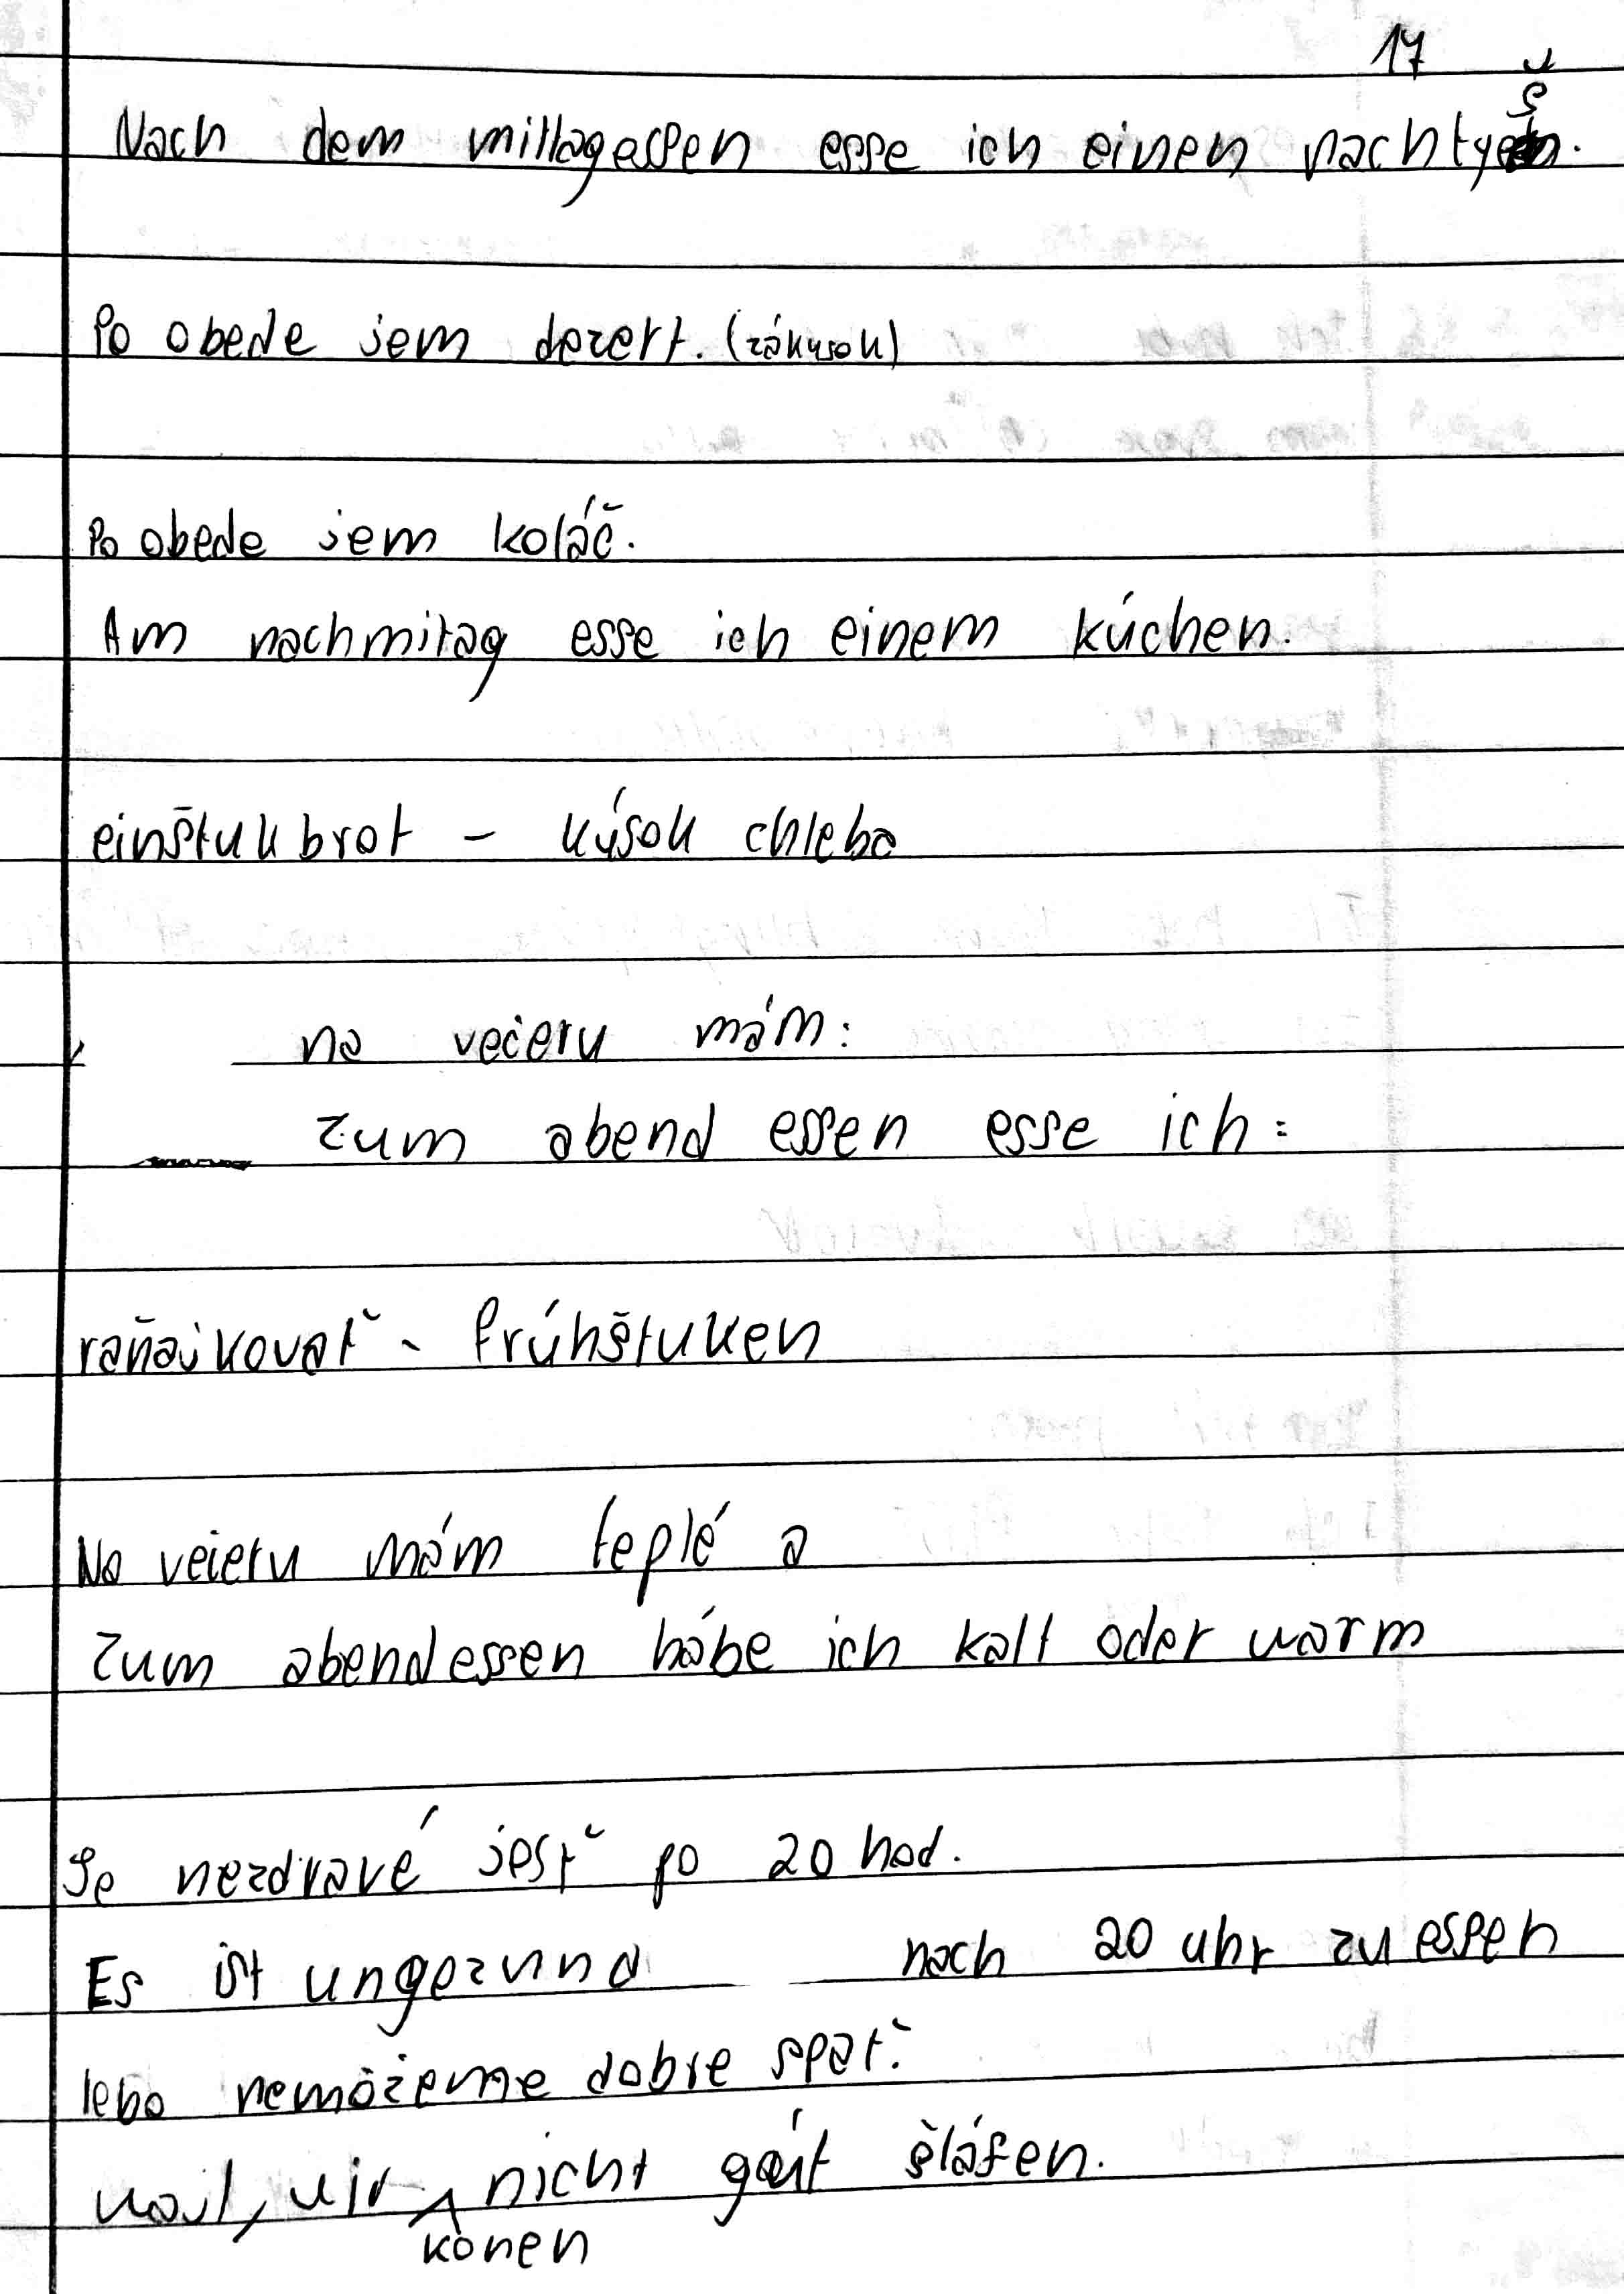 17
Nach dem mittagessen esse ich einen nachty
Po obede jem dezert. (zákusok)
Po obede jem koláč.
Am nachmitag esse ich einem kúchen.
einštuk brot - kúsok chleba
na večeru mám:
zum abend essen esse ich:
raňajkovať - frúhštuken
Na večeru mám teplé a
Zum abendessen hábe ich kalt oder warm
Je nezdravé jesť po 20 hod.
Es ist ungezund nach 20 uhr zu essen
lebo nemôžeme dobre spať.
vajl, vir nicht gút šláfen.
konen